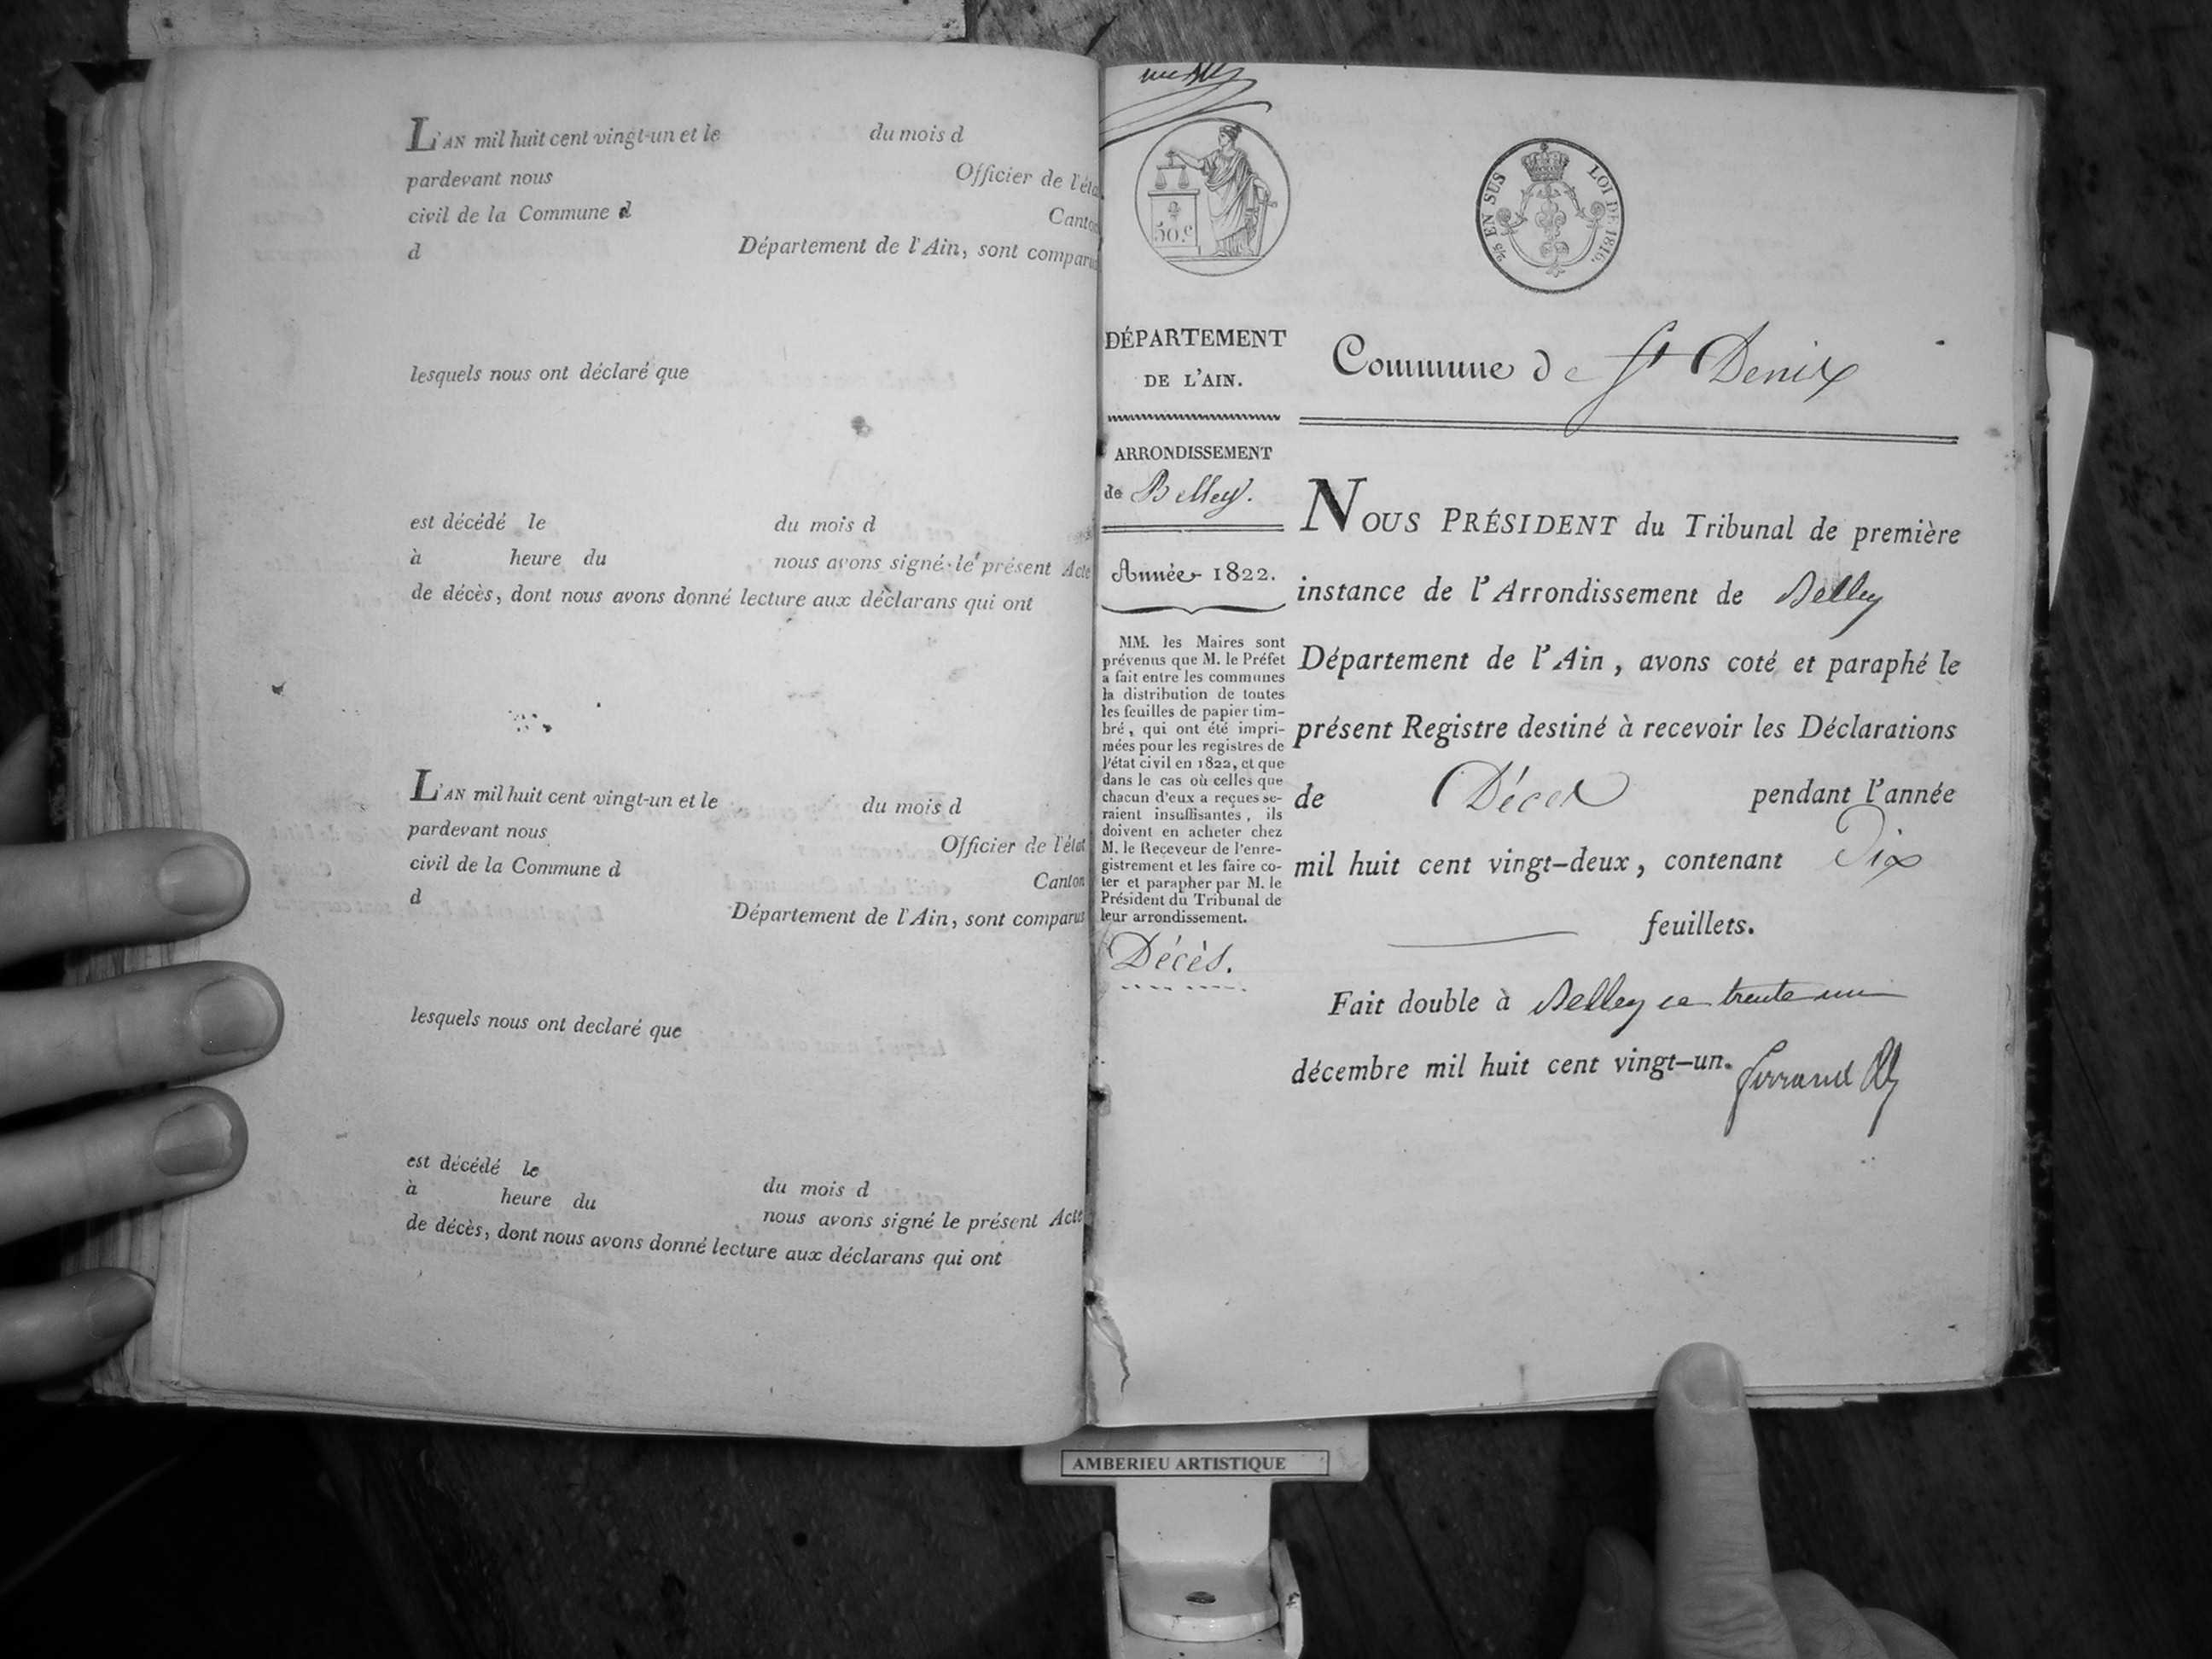 L'AN mil huit cent vingt-un et le du mois d
pardevant nous Officier de l'éta
civil de la Commune d Canton
d Département de l'Ain, sont comparus
lesquels nous ont déclaré que
est décédé le du mois d
à heure du nous avons signé le présent Acte
de décès, dont nous avons donné lecture aux déclarans qui ont
L'AN mil huit cent vingt-un et le du mois d
pardevant nous Officier de l'état
civil de la Commune d Canton
d Département de l'Ain, sont comparus
lesquels nous ont declaré que
est décédé le du mois d
à heure du nous avons signé le présent Acte
de décès, dont nous avons donné lecture aux déclarans qui ont
50.c
2/5 EN SUS LOI DE 1816.
DÉPARTEMENT
DE L'AIN.
ARRONDISSEMENT
de Belley.
Année 1822.
MM. les Maires sont
prévenus que M. le Préfet
a fait entre les communes
la distribution de toutes
les feuilles de papier tim-
bré, qui ont été impri-
mées pour les registres de
l'état civil en 1822, et que
dans le cas où celles que
chacun d'eux a reçues se-
raient insuffisantes, ils
doivent en acheter chez
M. le Receveur de l'enre-
gistrement et les faire co-
ter et parapher par M. le
Président du Tribunal de
leur arrondissement.
Décès.
Commune de St Denis
NOUS PRÉSIDENT du Tribunal de première
instance de l'Arrondissement de Belley
Département de l'Ain, avons coté et paraphé le
présent Registre destiné à recevoir les Déclarations
de Décès pendant l'année
mil huit cent vingt-deux, contenant Dix
feuillets.
Fait double à Belley ce trente un
décembre mil huit cent vingt-un.
AMBERIEU ARTISTIQUE